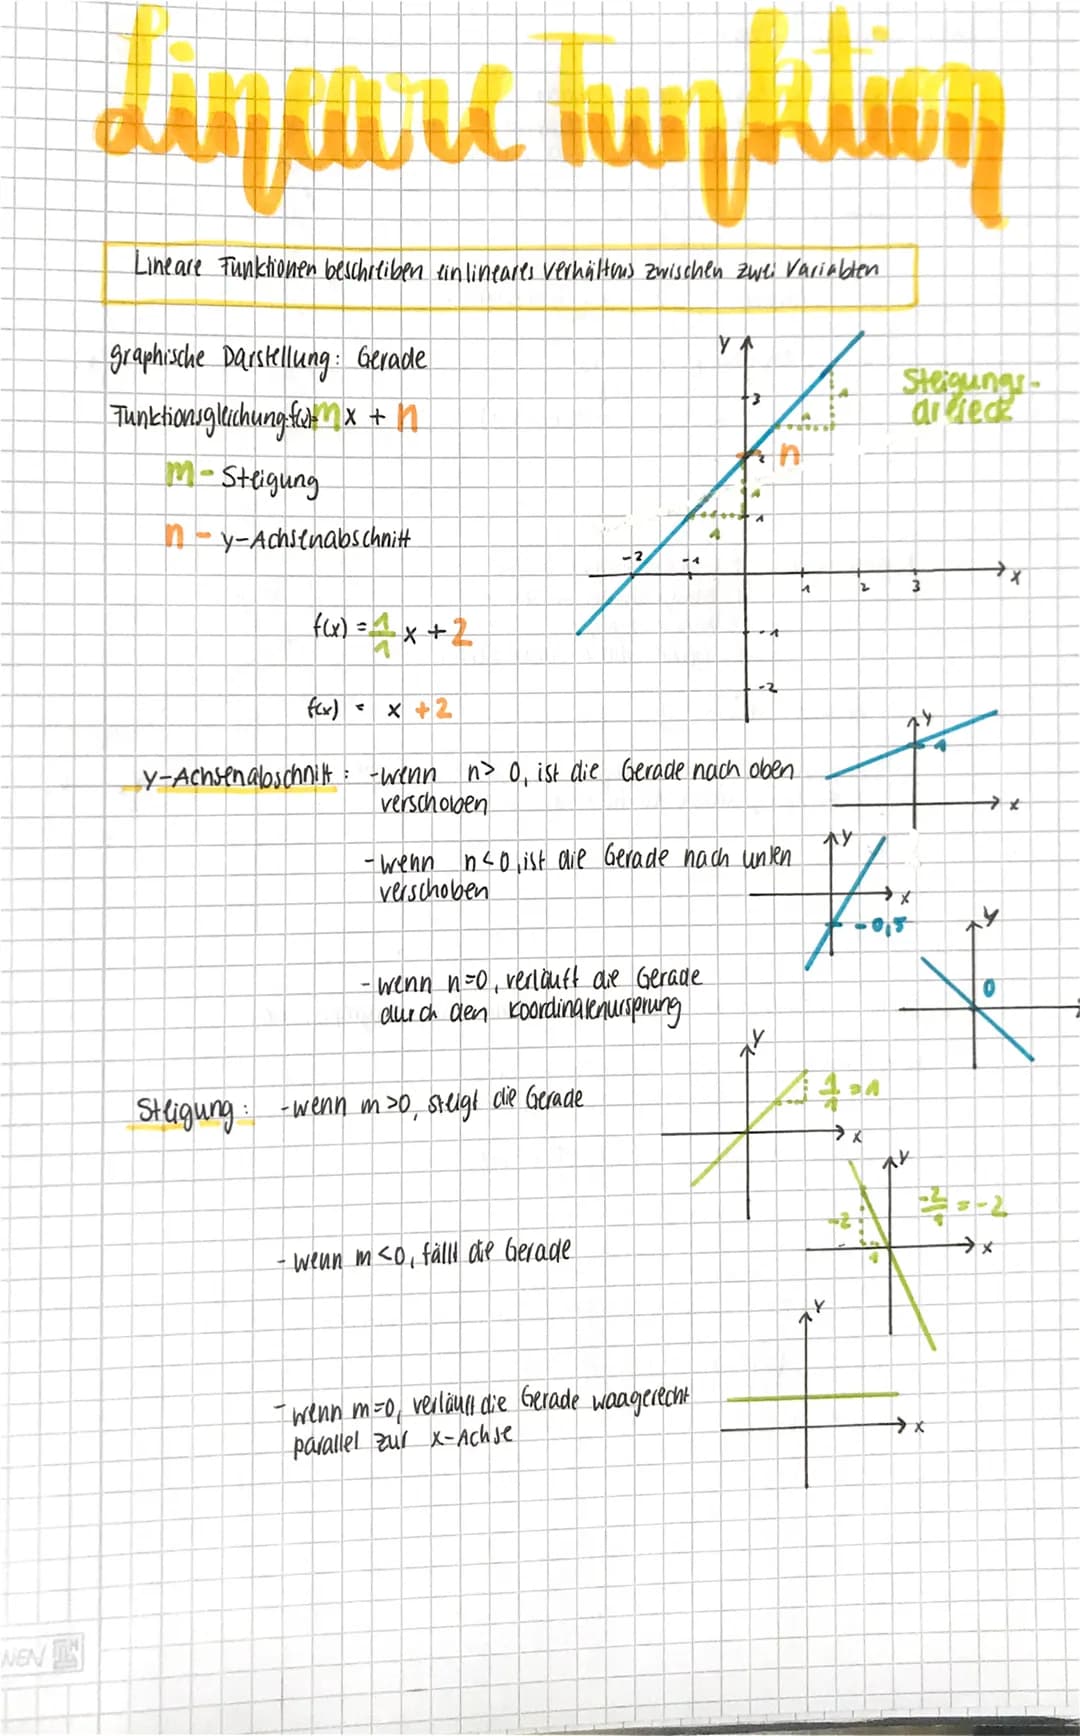 Lineare Funktion
Lineare Funktionen beschreiben ein lineares Verhältnis zwischen zwei Variablen
graphische Darstellung: Gerade
Funktionsgleichung: f(x)=mx + n
m - Steigung
n - y-Achsenabschnitt
f(x) = 1/1 x + 2
f(x) = x + 2
y
3
2
1
-2
-1
1
2
3
x
-1
-2
n
1
1
1
1
Steigungs-
dreieck
y-Achsenabschnitt: -wenn n> 0, ist die Gerade nach oben
verschoben
y
1
x
-wenn n<0, ist die Gerade nach unten
verschoben
y
x
-0,5
-wenn n=0, verläuft die Gerade
durch den Koordinatenursprung
y
0
Steigung: -wenn m>0, steigt die Gerade
y
1/1 = 1
x
-wenn m<0, fällt die Gerade
y
-2
1
-2/1 = -2
x
-wenn m=0, verläuft die Gerade waagerecht
parallel zur x-Achse
y
x
NEN